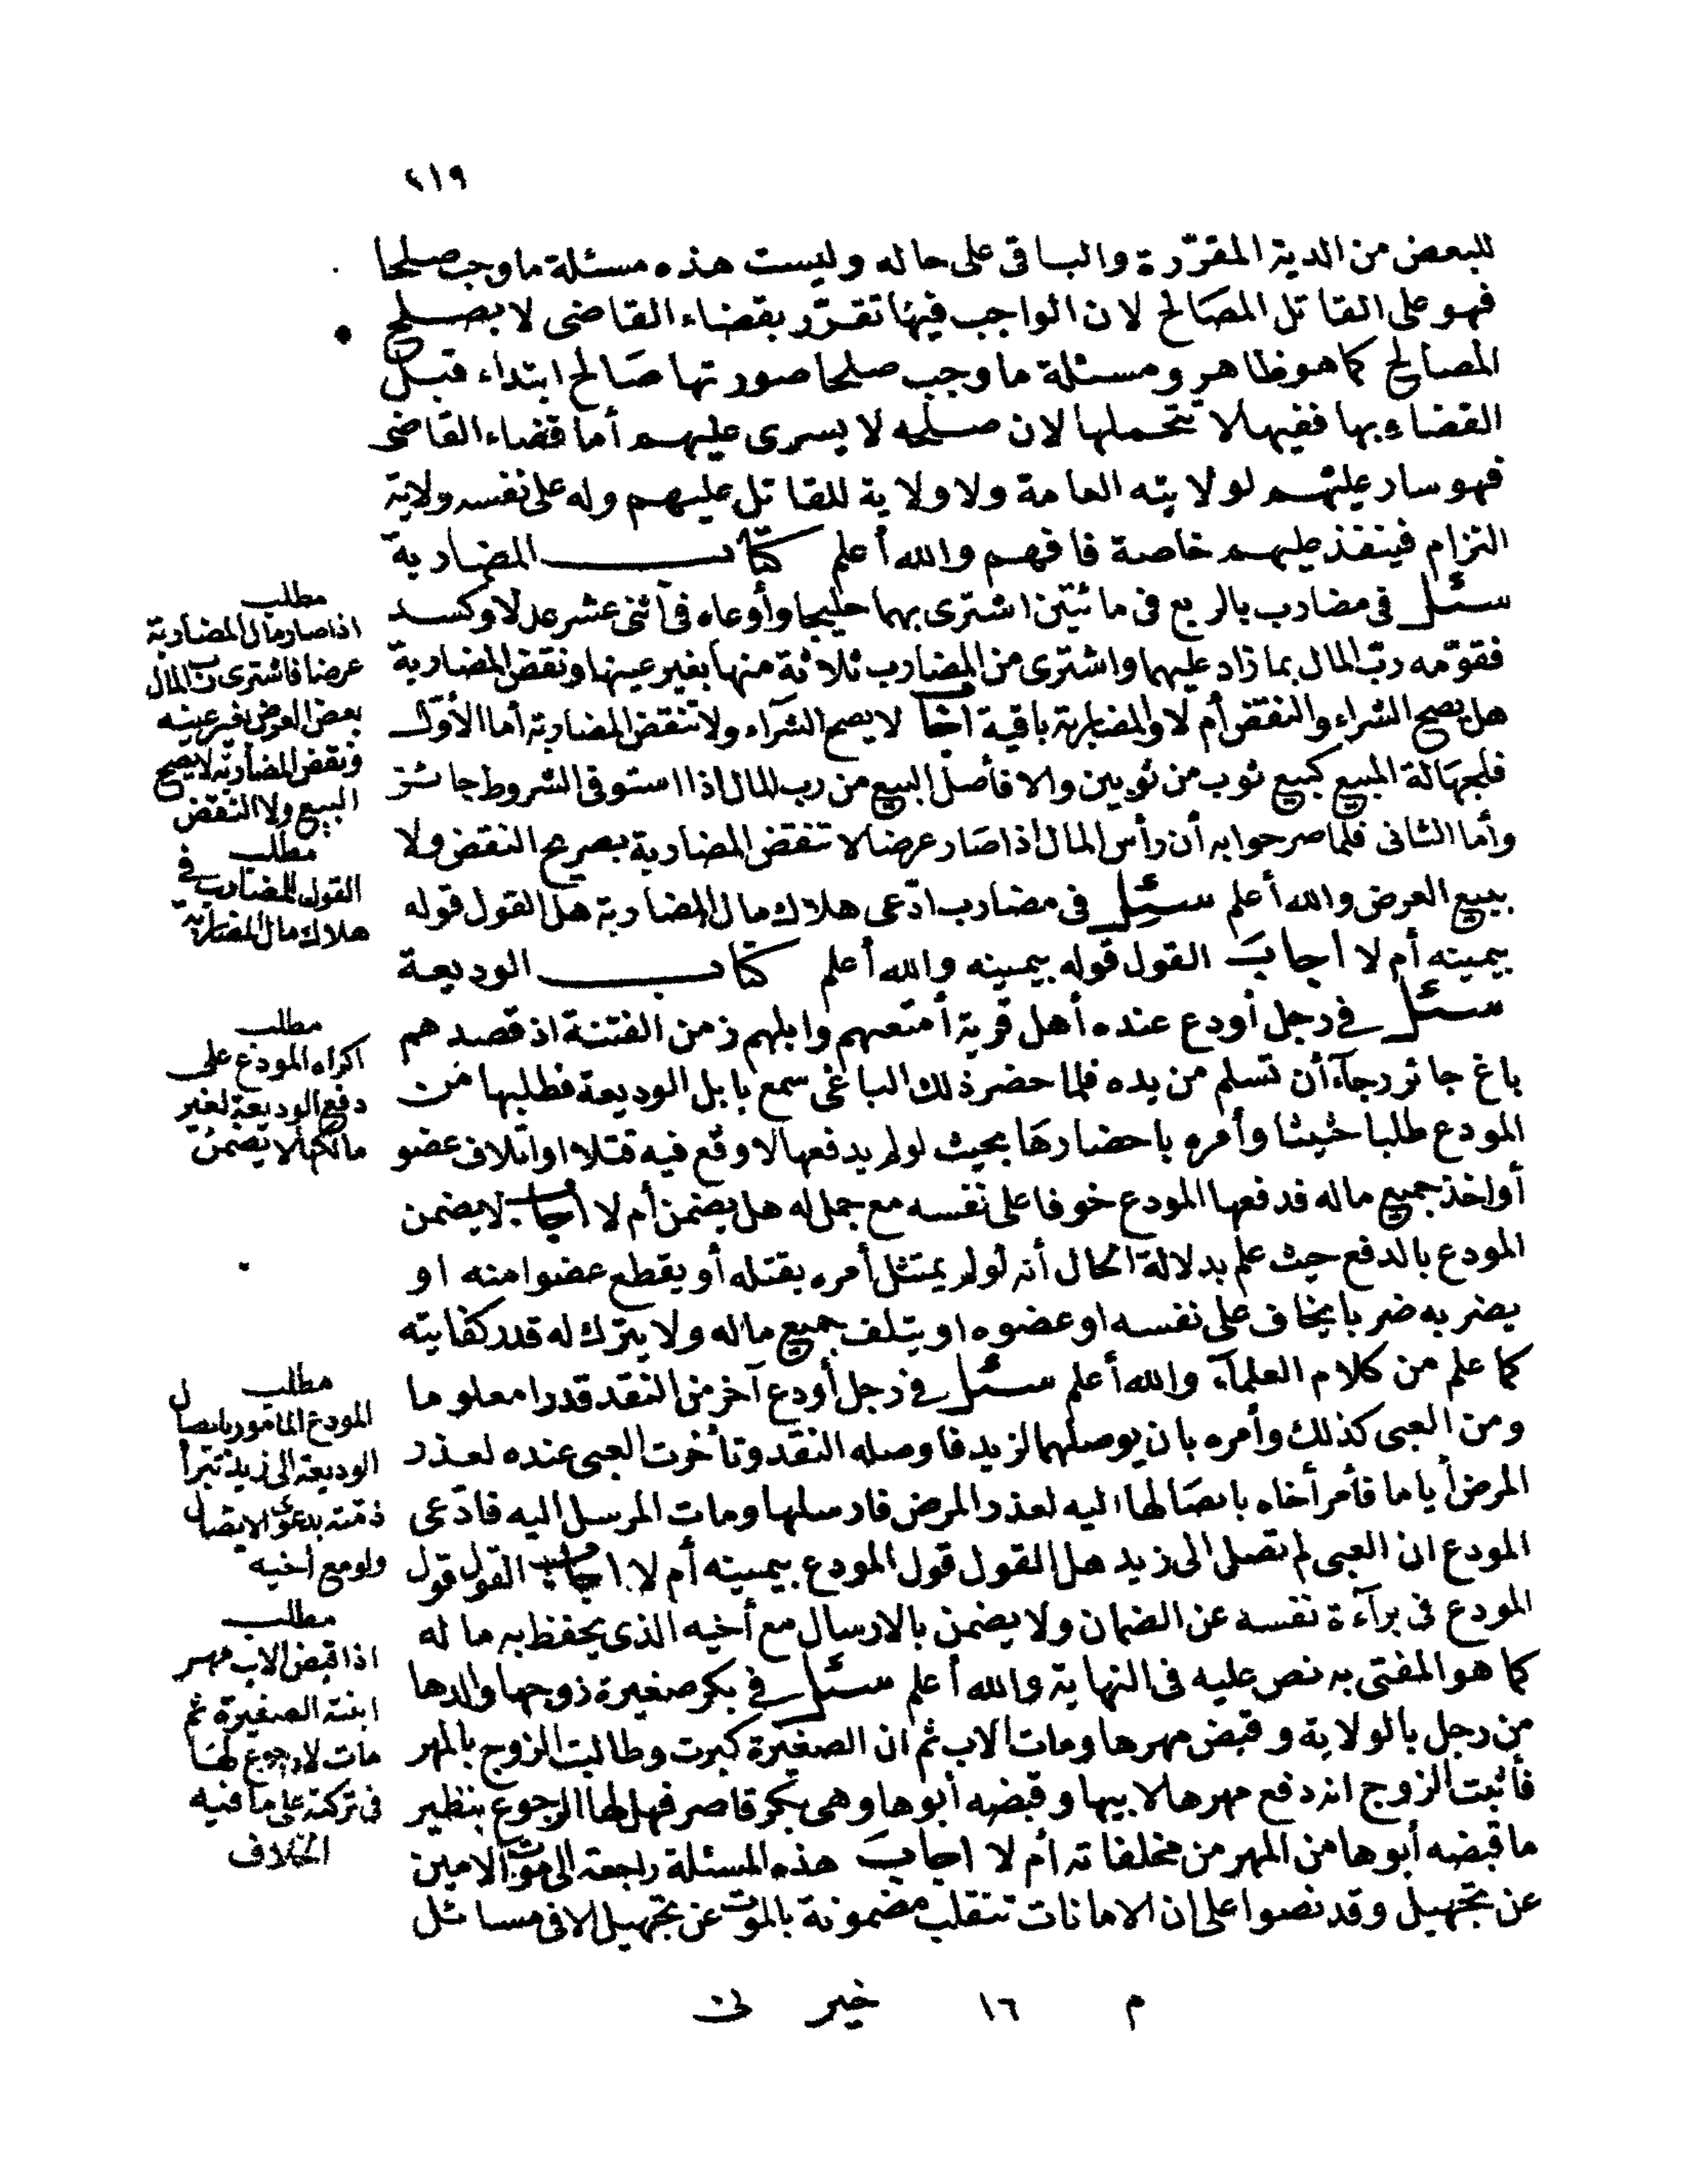 ٢١٩
للبعض من الدية المقرّرة والباقى على حاله وليست هذه مسئلة ما وجب صلحا
فهو على القاتل المصالح لان الواجب فيها تقرّر بقضاء القاضى لا بصلح
المصالح كما هو ظاهر ومسئلة ما وجب صلحا صورتها صالح ابتداء قبل
القضاء بها ففيها لا تتحملها لان صلحه لا يسرى عليهم أما قضاء القاضى
فهو سار عليهم لولايته العامة ولا ولاية للقاتل عليهم وله على نفسه ولاية
التزام فينفذ عليهم خاصة فافهم والله أعلم كتاب المضاربة
سئل فى مضارب بالربع فى مائتين اشترى بهما حليجا وأوعاه فى اثنى عشر عدلا وكسد
فقوّمه ربّ المال بما زاد عليهما واشترى من المضارب ثلاثة منها بغير عينها ونقض المضاربة
هل يصح الشراء والنقض أم لا والمضاربة باقية اجاب لا يصح الشرآء ولا تنقض المضاربة أما الأوّل
فلجهالة المبيع كبيع ثوب من ثوبين والا فأصل البيع من رب المال اذا استوفى الشروط جائز
وأما الثانى فلما صرحوا به أن رأس المال اذا صار عرضا لا تنقض المضاربة بصريح النقض ولا
ببيع العرض والله أعلم سئل فى مضارب ادّعى هلاك مال المضاربة هل القول قوله
بيمينه أم لا اجاب القول قوله بيمينه والله أعلم كتاب الوديعة
سئل في رجل أودع عنده أهل قرية أمتعتهم وابلهم زمن الفتنة اذ قصدهم
باغ جائر رجآء أن تسلم من يده فلما حضر ذلك الباغى سمع بابل الوديعة فطلبها من
المودع طلبا حثيثا وأمره باحضارها بحيث لو لم يدفعها لاوقع فيه قتلا او اتلاف عضو
أو اخذ جميع ماله فدفعها المودع خوفا على نفسه مع جمل له هل يضمن أم لا أجاب لا يضمن
المودع بالدفع حيث علم بدلالة الحال أنه لو لم يمتثل أمره يقتله أو يقطع عضوا منه او
يضربه ضربا يخاف على نفسه او عضوه او يتلف جميع ماله ولا يترك له قدر كفايته
كما علم من كلام العلمآء والله أعلم سئل في رجل أودع آخر من النقد قدرا معلوما
ومن العبى كذلك وأمره بان يوصلهما لزيد فاوصله النقد وتأخرت العبى عنده لعذر
المرض أياما فأمر أخاه بايصالها اليه لعذر المرض فارسلها ومات المرسل اليه فادّعى
المودع ان العبى لم تصل الى زيد هل القول قول المودع بيمينه أم لا اجاب القول قول
المودع فى برآءة نفسه عن الضمان ولا يضمن بالارسال مع أخيه الذى يحفظ به ماله
كما هو المفتى به نص عليه فى النهاية والله أعلم سئل في بكر صغيرة زوجها والدها
من رجل بالولاية وقبض مهرها ومات الاب ثم ان الصغيرة كبرت وطالبت الزوج بالمهر
فأثبت الزوج انه دفع مهرها لابيها وقبضه أبوها وهى بكر قاصر فهل لها الرجوع بنظير
ما قبضه أبوها من المهر من مخلفاته أم لا اجاب هذه المسئلة راجعة الى موت الامين
عن تجهيل وقد نصوا على ان الامانات تنقلب مضمونة بالموت عن تجهيل الا فى مسائل
مطلب
اذا صار مال المضاربة
عرضا فاشترى رب المال
بعض العرض بغير عينه
ونقض المضاربة لا يصح
البيع ولا النقض
مطلب
القول للمضارب في
هلاك مال المضاربة
مطلب
اكراه المودع على
دفع الوديعة لغير
مالكها لا يضمن
مطلب
المودع المأمور بايصال
الوديعة الى زيد تبرأ
ذمته بدعوى الايصال
ولو مع أخيه
مطلب
اذا قبض الاب مهر
ابنته الصغيرة ثم
مات لا رجوع لها
فى تركته على ما فيه
الخلاف
م ١٦ خير